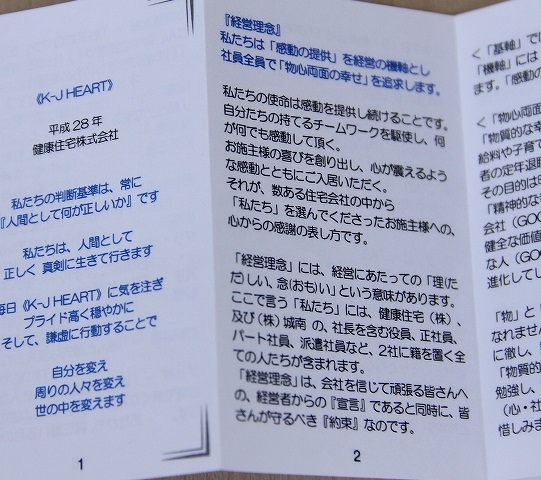 《K-J HEART》
平成28年
健康住宅株式会社
私たちの判断基準は、常に
『人間として何が正しいか』です
私たちは、人間として
正しく 真剣に生きて行きます
毎日《K-J HEART》に気を注ぎ
プライド高く穏やかに
そして、謙虚に行動することで
自分を変え
周りの人々を変え
世の中を変えます
1
『経営理念』
私たちは「感動の提供」を経営の機軸とし
社員全員で「物心両面の幸せ」を追求します。
私たちの使命は感動を提供し続けることです。
自分たちの持てるチームワークを駆使し、何
が何でも感動して頂く。
お施主様の喜びを創り出し、心が震えるよう
な感動とともにご入居いただく。
それが、数ある住宅会社の中から
「私たち」を選んでくださったお施主様への、
心からの感謝の表し方です。
「経営理念」には、経営にあたっての「理(た
だ)しい、念(おもい)という意味があります。
ここで言う「私たち」には、健康住宅(株)、
及び(株)城南 の、社長を含む役員、正社員、
パート社員、派遣社員など、2社に籍を置く全
ての人たちが含まれます。
「経営理念」は、会社を信じて頑張る皆さんへ
の、経営者からの『宣言』であると同時に、皆
さんが守るべき『約束』なのです。
2
<「基軸」で
「機軸」には
ます。「感動の
<「物心両面
「物質的な幸
給料や子育て
者の定年退職
その目的は
「精神的な
会社(GOO
健全な価値
な人(GOO
進化してい
「物」と「
なれません
に徹し、
「物質的
勉強し、
(心・社
惜しみま